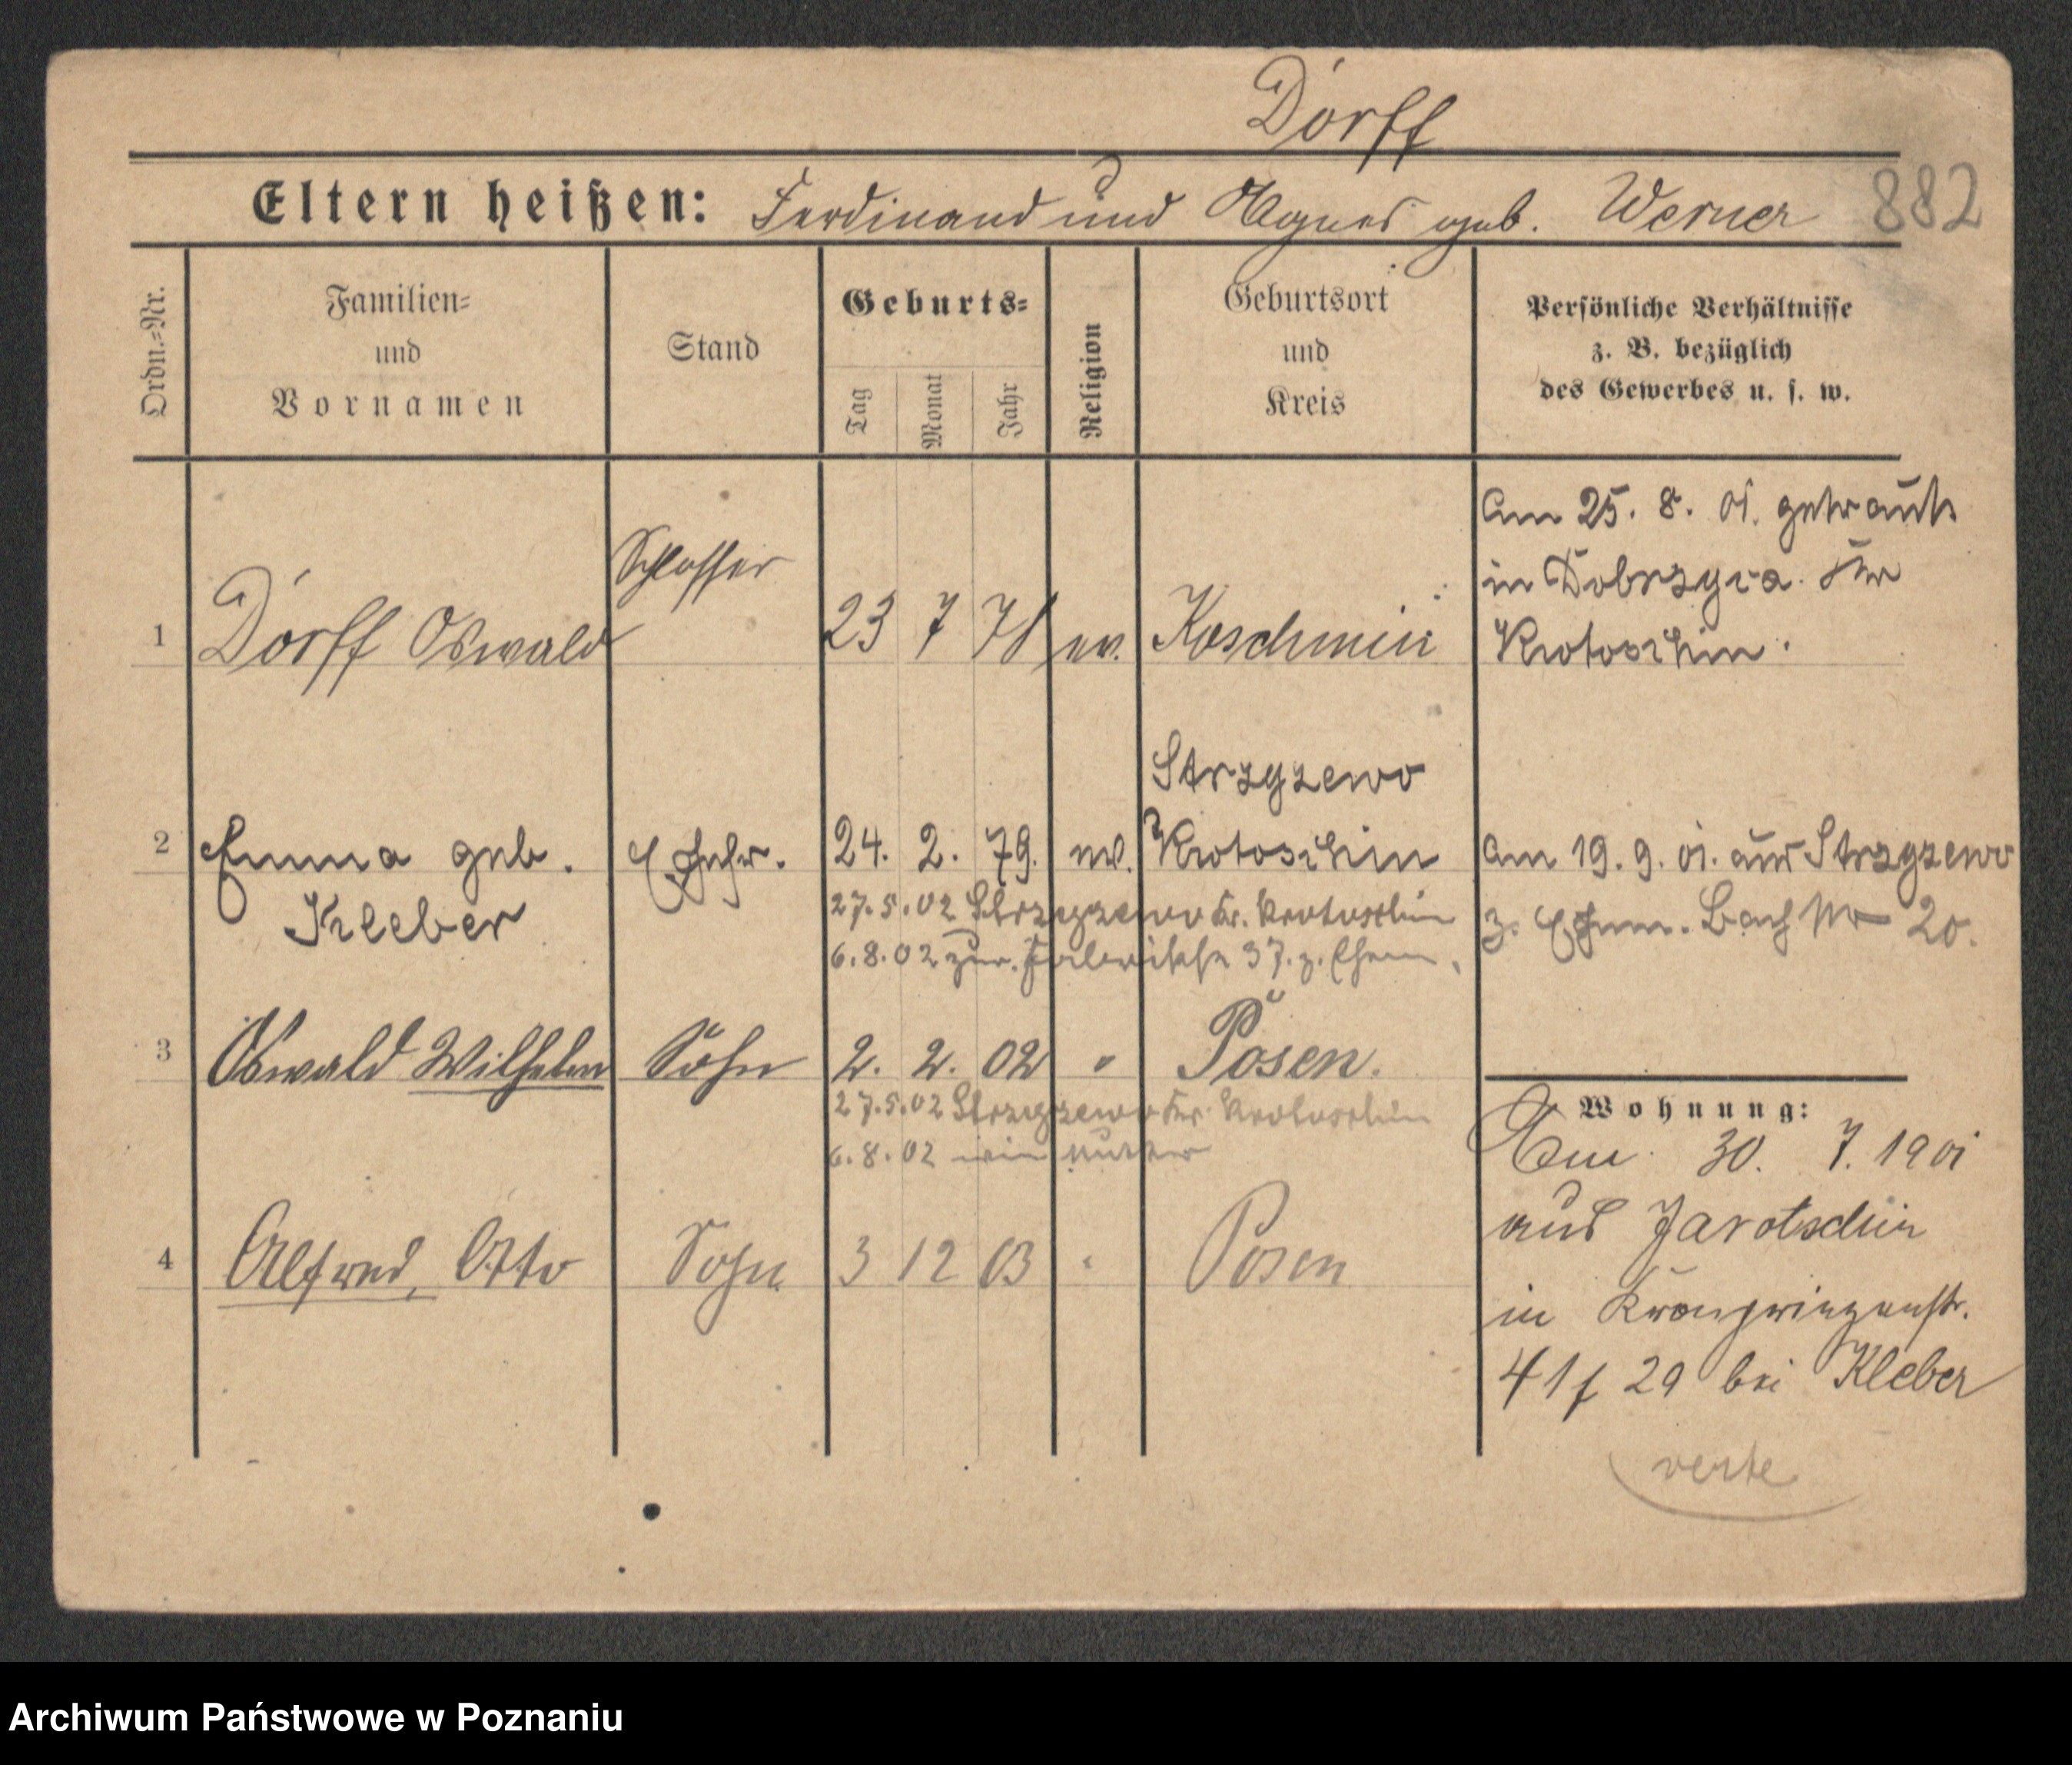 Dorff
Eltern heißen: Ferdinand und Agnes geb. Werner 882
Ordn.=Nr.
Familien=
und
Vornamen
Stand
Geburts=
Tag
Monat
Jahr
Religion
Geburtsort
und
Kreis
Persönliche Verhältnisse
z. B. bezüglich
des Gewerbes u. s. w.
1 Dorff Oswald Schlosser 23 7 78 ev. Koschmin
Am 25. 8. 01. getraut
in Dobrzyca. Kr
Krotoschin.
2 Emma geb. Kleber Ehefr. 24. 2. 79. ev. Strzyzewo
Krotoschin
Am 19. 9. 01. aus Strzyzewo
z. Ehem. Bach Nr 20.
27.5.02 Strzyzewo Kr. Krotoschin
6.8.02 zur. 37. z. Ehem.
3 Oswald Wilhelm Sohn 2. 2. 02 " Posen.
27.5.02 Strzyzewo Kr. Krotoschin
6.8.02 wie Mutter
4 Alfred, Otto Sohn 3 12 03 " Posen
Wohnung:
Am 30. 7. 1901
aus Jarotschin
in Kronprinzenstr.
41 f 29 bei Kleber
verte
Archiwum Państwowe w Poznaniu